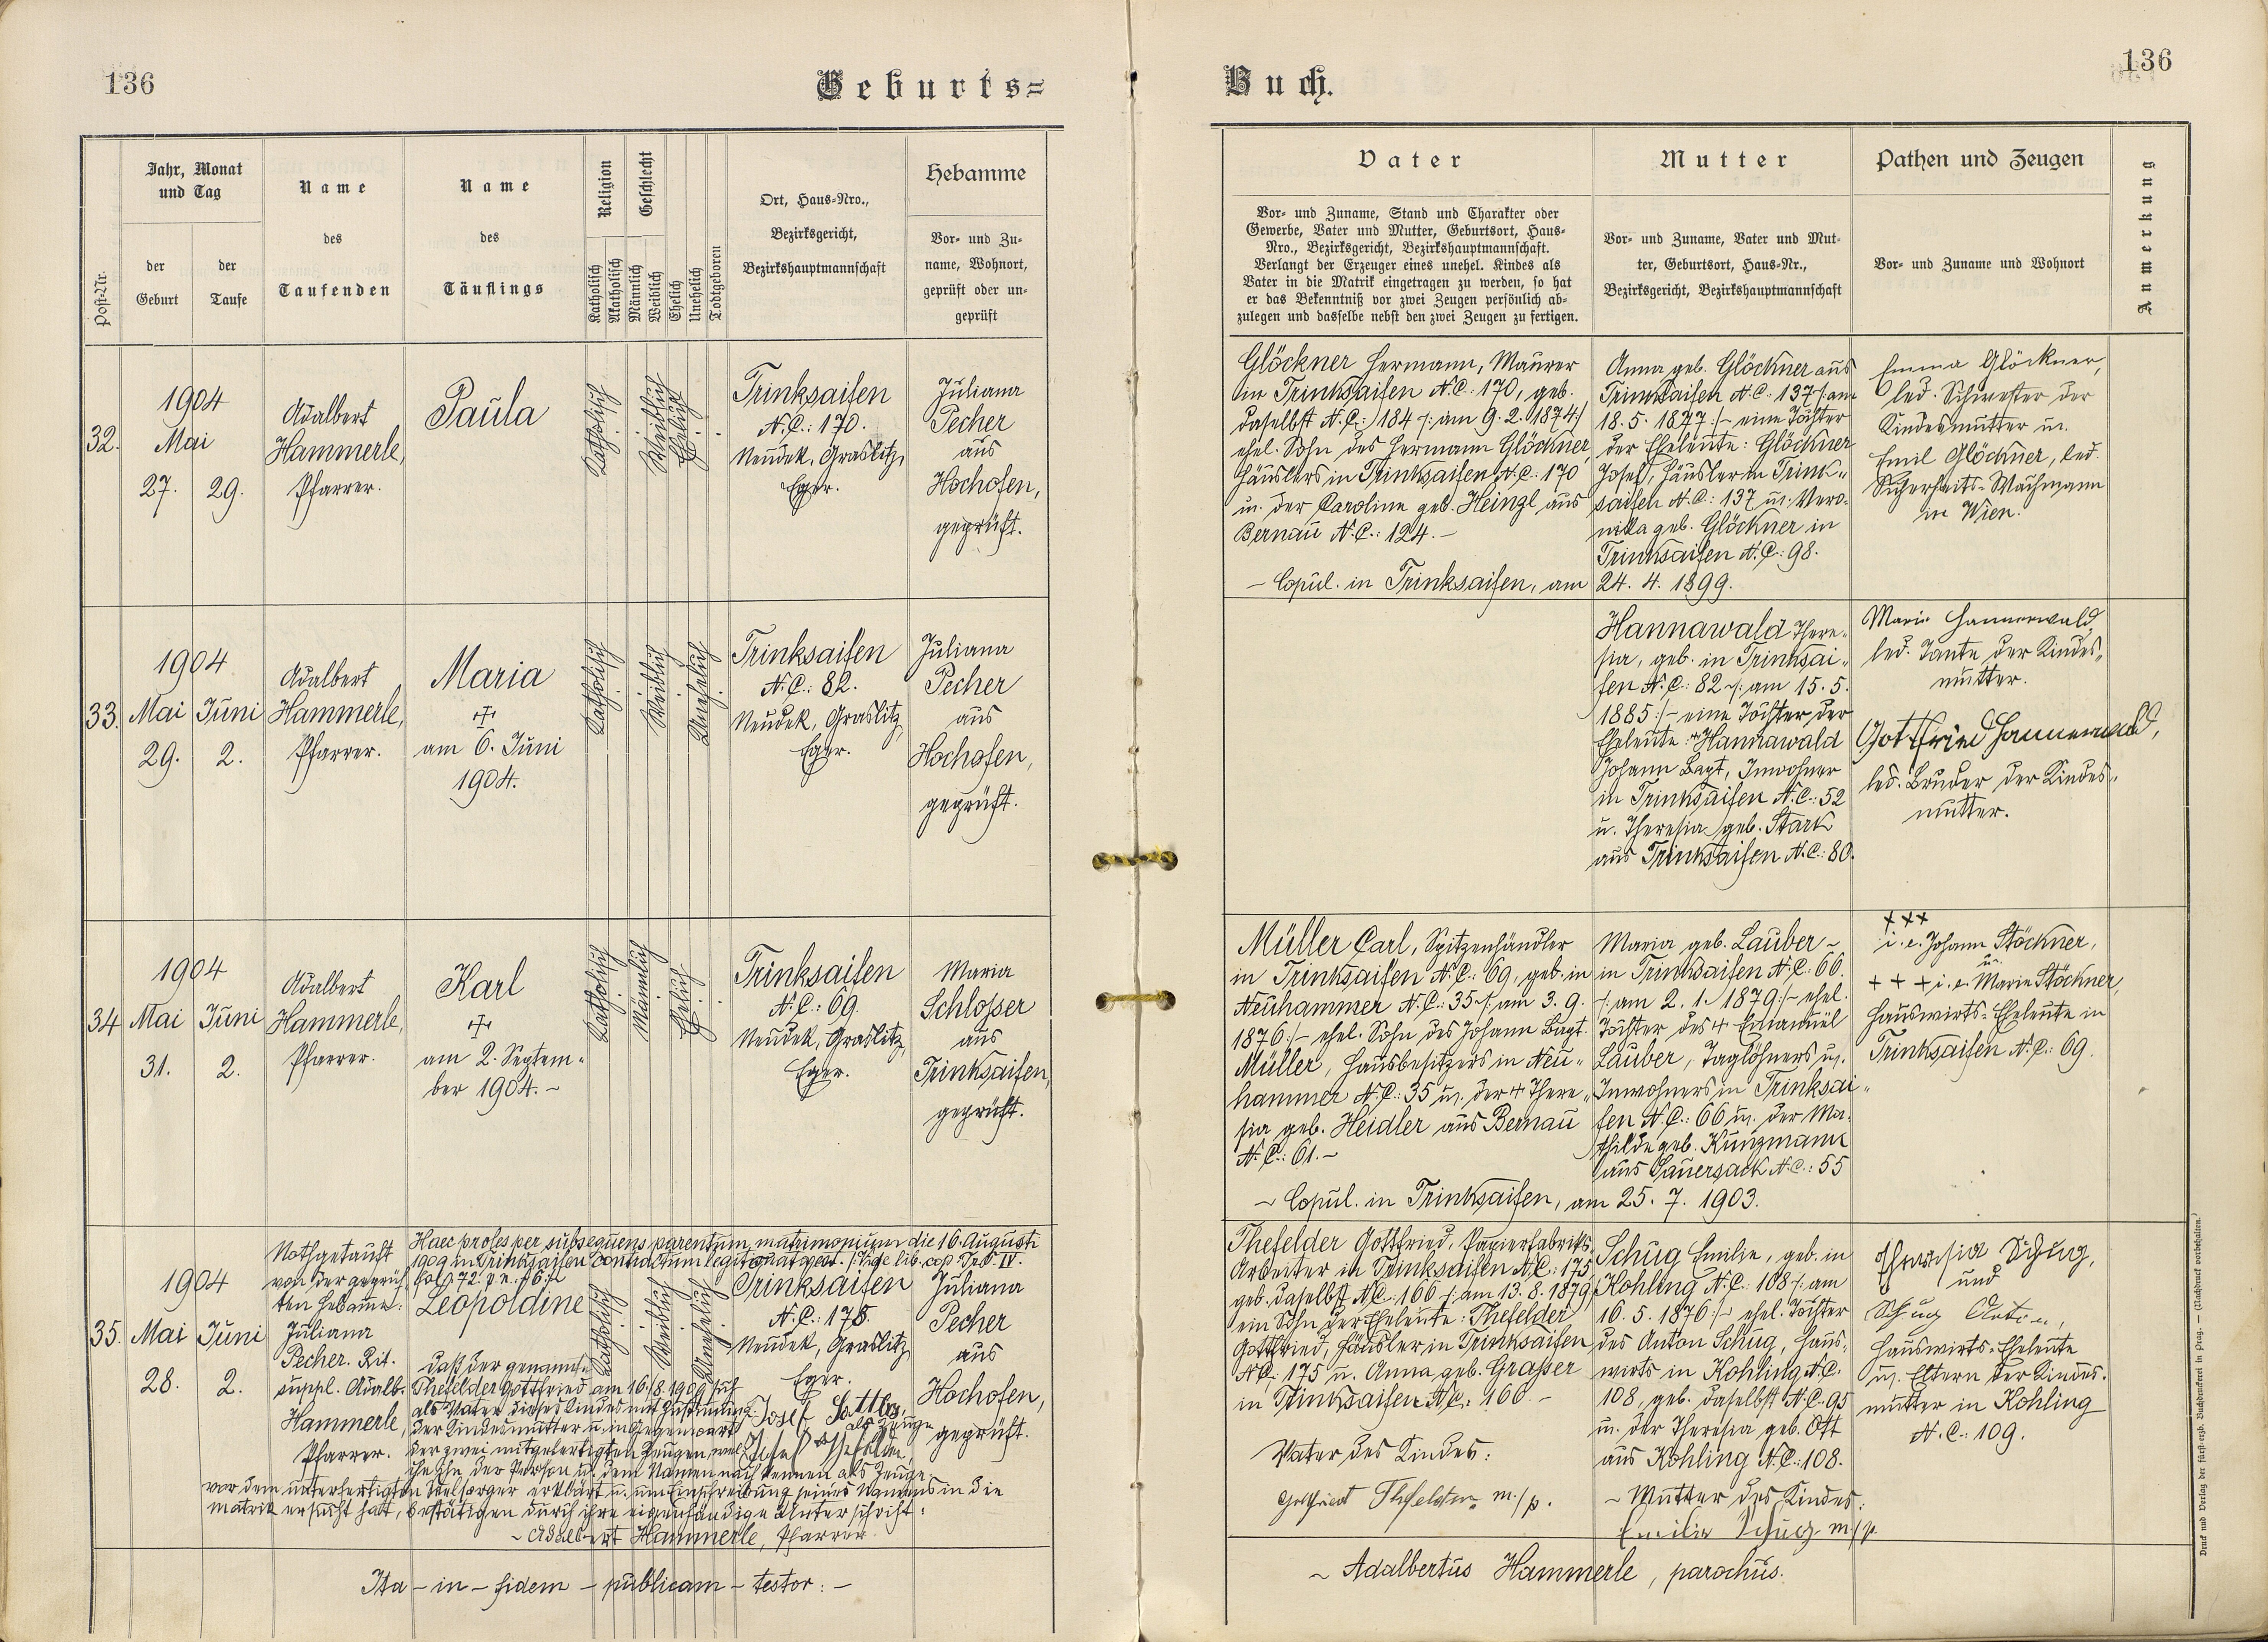 136
Geburts=
Jahr, Monat
und Tag
Post-Nr.
der
Geburt
der
Taufe
Name
des
Taufenden
Name
des
Täuflings
Religion
Katholisch
Akatholisch
Geschlecht
Männlich
Weiblich
Ehelich
Unehelich
Todtgeboren
Ort, Haus=Nro.,
Bezirksgericht,
Bezirkshauptmannschaft
Hebamme
Vor= und Zu=
name, Wohnort,
geprüft oder un=
geprüft
32.
1904
Mai
27.
29.
Adalbert
Hammerle,
Pfarrer.
Paula
Katholisch
Weiblich
Ehelich
Trinksaifen
N.C.: 170.
Neudek, Graslitz,
Eger.
Juliana
Pecher
aus
Hochofen,
geprüft.
33.
1904
Mai
Juni
29.
2.
Adalbert
Hammerle,
Pfarrer.
Maria
am 6. Juni
1904.
Katholisch
Weiblich
Unehelich
Trinksaifen
N.C.: 82.
Neudek, Graslitz,
Eger.
Juliana
Pecher
aus
Hochofen,
geprüft.
34
1904
Mai
Juni
31.
2.
Adalbert
Hammerle,
Pfarrer.
Karl
am 2. Septem=
ber 1904. -
Katholisch
Männlich
Ehelich
Trinksaifen
N.C.: 69.
Neudek, Graslitz,
Eger.
Maria
Schlosser
aus
Trinksaifen,
geprüft.
35.
1904
Mai
Juni
28.
2.
Nothgetauft
von der geprüf=
ten Hebamme:
Juliana
Pecher. Rit.
suppl. Adalb.
Hammerle,
Pfarrer.
Haec proles per subsequens parentum matrimonium die 16. Augusti
1909 in Trinksaifen contractum legitimat est. Vide lib. cop. IV.
fol. 72. p. n. 16.
Leopoldine
Katholisch
Weiblich
Unehelich
Trinksaifen
N.C.: 175.
Neudek, Graslitz,
Eger.
Juliana
Pecher
aus
Hochofen,
geprüft.
Daß der genannte
Thefelder Gottfried am 16./8. 1909 sich
als Vater dieses Kindes mit Zustimmung
der Kindesmutter u. in Gegenwart
der zwei mitgefertigten Zeugen, wel=
che ihn der Person u. dem Namen nach kennen
vor dem unterfertigten Seelsorger erklärt u. um Einschreibung seines Namens in die
Matrik ersucht hat, bestätigen durch ihre eigenhändige Unterschrift:
Josef Sattler,
als Zeuge
Josef
als Zeuge
~ Adalbert Hammerle, Pfarrer
Ita - in - fidem - publicam - testor: -
Buch.
136
Vater
Vor= und Zuname, Stand und Charakter oder
Gewerbe, Vater und Mutter, Geburtsort, Haus=
Nro., Bezirksgericht, Bezirkshauptmannschaft.
Verlangt der Erzeuger eines unehel. Kindes als
Vater in die Matrik eingetragen zu werden, so hat
er das Bekenntniß vor zwei Zeugen persönlich ab=
zulegen und dasselbe nebst den zwei Zeugen zu fertigen.
Mutter
Vor= und Zuname, Vater und Mut=
ter, Geburtsort, Haus=Nr.,
Bezirksgericht, Bezirkshauptmannschaft
Pathen und Zeugen
Vor= und Zuname und Wohnort
Anmerkung
Glöckner Hermann, Maurer
in Trinksaifen N.C.: 170, geb.
daselbst N.C.: 184 /: am 9. 2. 1874:/
ehel. Sohn des Hermann Glöckner,
Häuslers in Trinksaifen N.C.: 170
u. der Caroline geb. Heinzl aus
Bernau N.C.: 124. -
Anna geb. Glöckner aus
Trinksaifen N.C.: 137 /: am
18. 5. 1877:/ - eine Tochter
der Eheleute: Glöckner
Josef, Häusler in Trink=
saifen N.C.: 137 u. Vero=
nika geb. Glöckner in
Trinksaifen N.C.: 98.
- Copul. in Trinksaifen, am 24. 4. 1899.
Emma Glöckner,
led. Schwester der
Kindesmutter u.
Emil Glöckner, led.
Sicherheits=Wachmann
in Wien.
Hannawald There=
sia, geb. in Trinksai=
fen N.C.: 82 /: am 15. 5.
1885:/ - eine Tochter der
Eheleute: Hannawald
Johann Bapt., Inwohner
in Trinksaifen N.C.: 52
u. Theresia geb. Stark
aus Trinksaifen N.C.: 80.
Marie Hannerwald,
led. Tante der Kindes=
mutter.
Gottfried Hannerwald,
led. Bruder der Kindes=
mutter.
Müller Carl, Spitzenhändler
in Trinksaifen N.C.: 69, geb. in
Neuhammer N.C.: 35 /: am 3. 9.
1876:/ - ehel. Sohn des Johann Bapt.
Müller, Hausbesitzers in Neu=
hammer N.C.: 35 u. der + There=
sia geb. Heidler aus Bernau
N.C.: 61. -
Maria geb. Lauber -
in Trinksaifen N.C.: 66.
/: am 2. 1. 1879:/ - ehel.
Tochter des + Emanuel
Lauber, Taglöhners u.
Inwohners in Trinksai=
fen N.C.: 66 u. der Ma=
thilde geb. Kunzmann
aus Sauersack N.C.: 55
~ Copul. in Trinksaifen, am 25. 7. 1903.
+++
i. e. Johann Stöckner,
u.
+++ i. e. Marie Stöckner,
Hauswirts=Eheleute in
Trinksaifen N.C.: 69.
Thefelder Gottfried, Papierfabriks=
Arbeiter in Trinksaifen N.C.: 175
geb. daselbst N.C.: 166 /: am 13. 8. 1879:/
ein Sohn der Eheleute: Thefelder
Gottfried, Häusler in Trinksaifen
N.C.: 175 u. Anna geb. Grasser
in Trinksaifen N.C.: 160. -
Vater des Kindes:
Gottfried Thefelder m./p.
Schug Emilie, geb. in
Kohling N.C.: 108 /: am
16. 5. 1876:/ - ehel. Tochter
des Anton Schug, Haus=
wirts in Kohling N.C.
108, geb. daselbst N.C. 95
u. der Theresia geb. Ott
aus Kohling N.C.: 108.
~ Mutter des Kindes:
Emilie Schug m./p.
Theresia Schug,
und
Schug Anton,
Hauswirts=Eheleute
u. Eltern der Kindes=
mutter in Kohling
N.C.: 109.
~ Adalbertus Hammerle, parochus.
Druck und Verlag der fürst=erzb. Buchdruckerei in Prag. — (Nachdruck vorbehalten.)